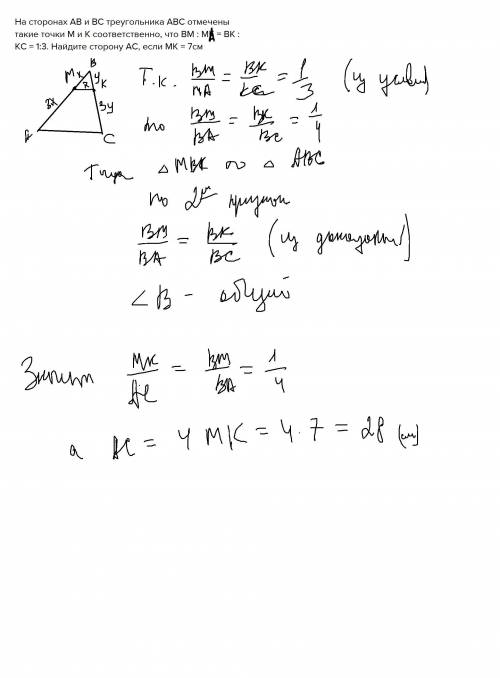 На сторонах АВ и ВС треугольника АВС отмечены
такие точки М и К соответственно, что ВМ : МА = ВК :
КС = 1:3. Найдите сторону АС, если МК = 7см
B
M x y K
7
3x 3y
A C
Т.к. BM/MA = BK/KC = 1/3 (из условия)
то BM/BA = BK/BC = 1/4
Тогда △ MBK ∾ △ ABC
по 2
BM/BA = BK/BC (из
∠B - общий
Значит MK/AC = BM/BA = 1/4
а AC = 4 MK = 4 · 7 = 28 (см)